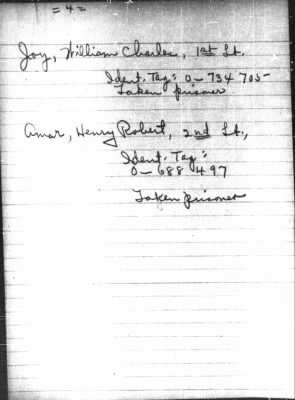 = 4 =
Joy, William Charles, 1st Lt.
Ident. Tag: 0-734 705-
Taken prisoner
Amar, Henry Robert, 2nd Lt.,
Ident. Tag:
0-688 497
Taken prisoner